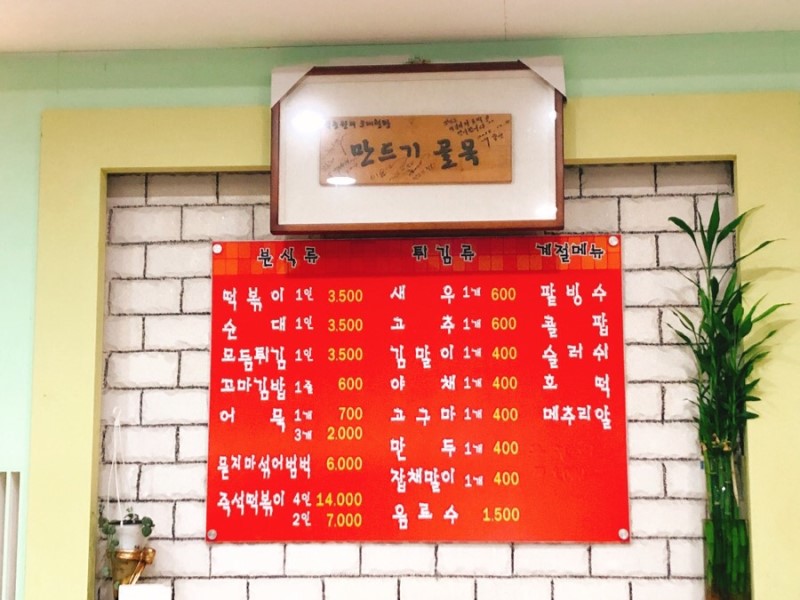 만드기 골목
분식류
떡볶이 1인 3.500
순대 1인 3.500
모듬튀김 1인 3.500
꼬마김밥 1줄 600
어묵 1개 700
3개 2.000
묻지마섞어범벅 6.000
즉석떡볶이 4인 14.000
2인 7.000
튀김류
새우 1개 600
고추 1개 600
김말이 1개 400
야채 1개 400
고구마 1개 400
만두 1개 400
잡채말이 1개 400
음료수 1.500
계절메뉴
팥빙수
콜팝
슬러쉬
호떡
메추리알